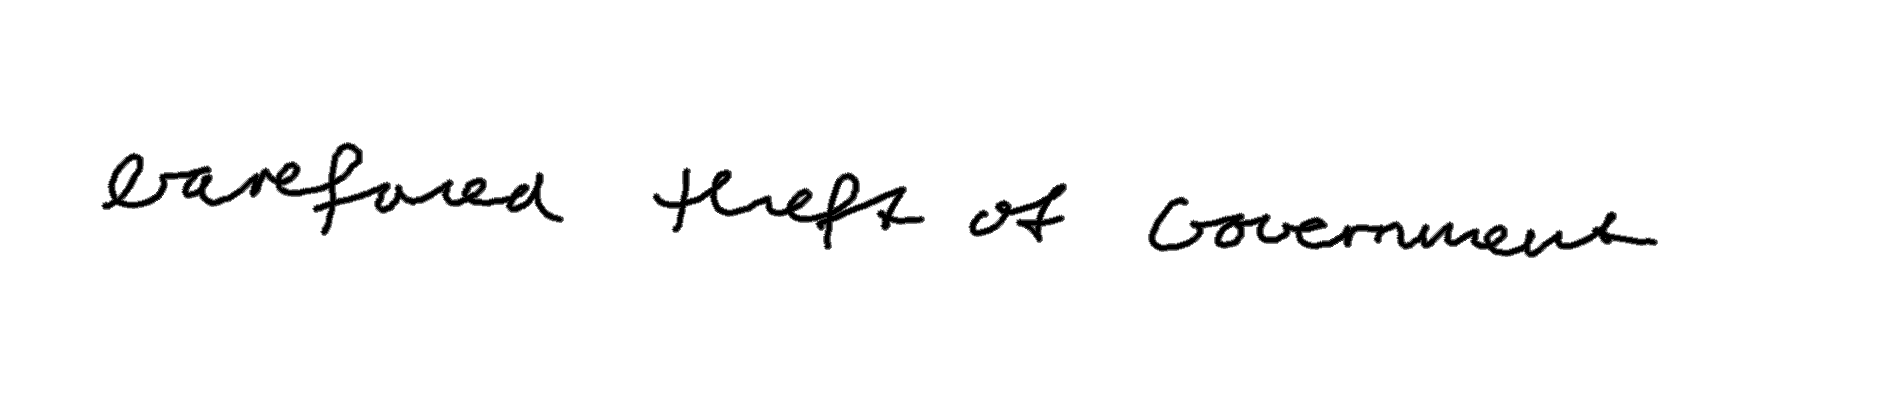 barefaced theft of Government